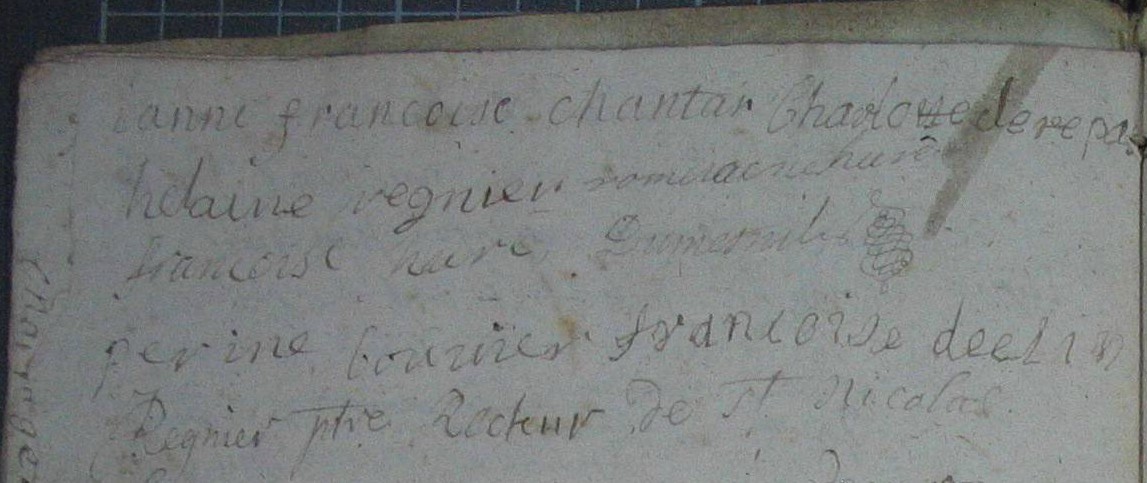 ianne francoise chantar Charlotte derepa
helaine regnier
francoise huré Dumesnil
perine francoise deelin
Regnier ptre Recteur de St Nicolas
Maryage